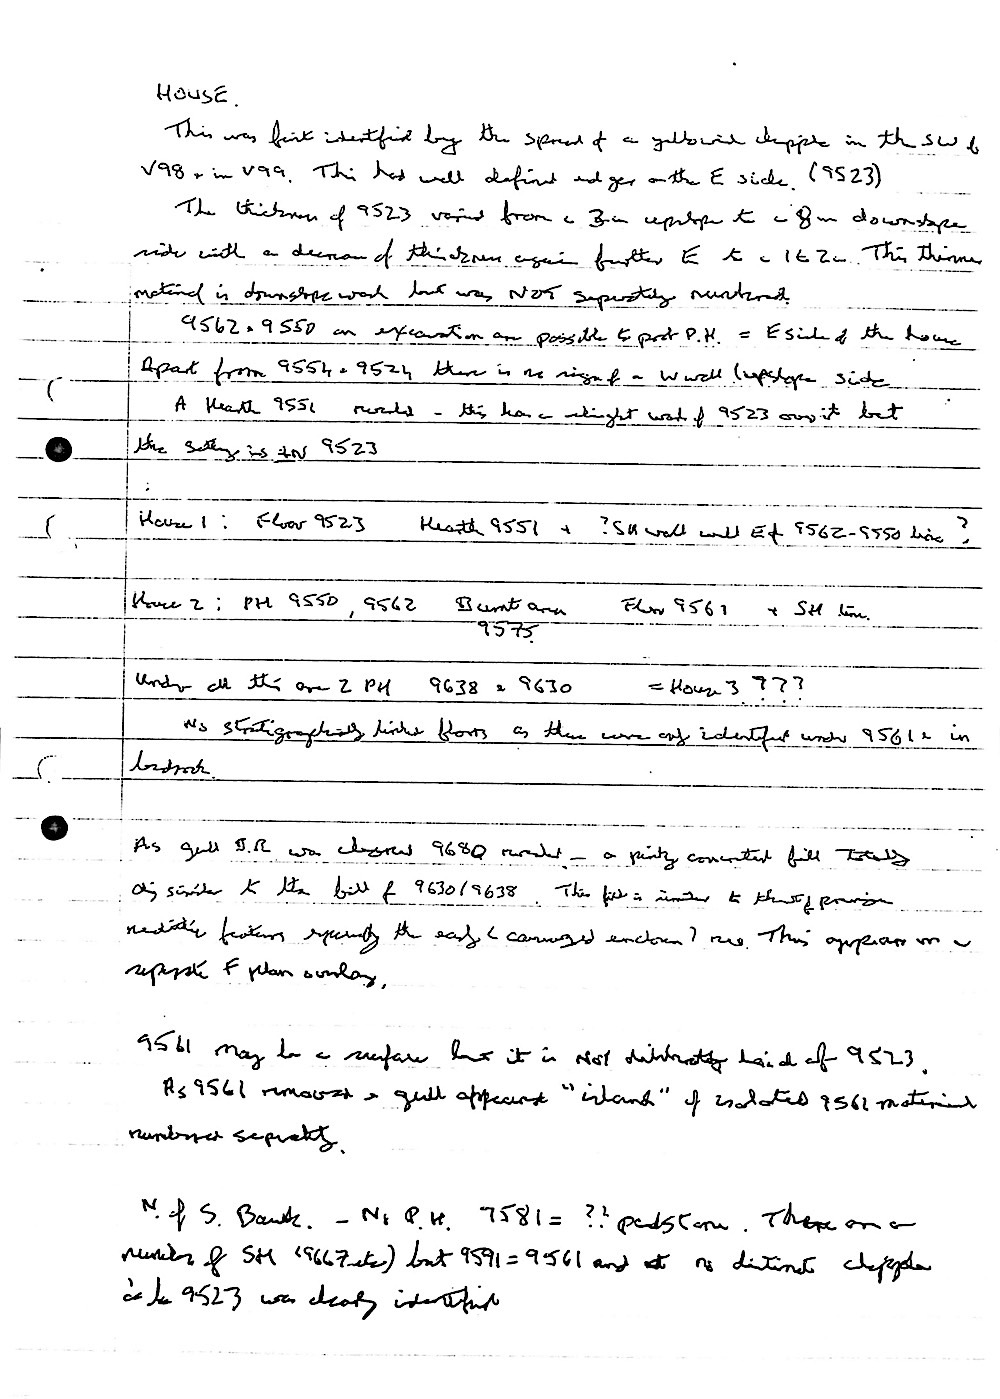 HOUSE.
This was first identified by the spread of a yellowish chapple in the SW of
V98 & in V99. This had well defined edges on the E side. (9523)
The thickness of 9523 varied from c 3cm upslope to c 8cm downslope
side with a decrease of thickness again further E to c 1 to 2cm. This thinner
material is downslope wash but was NOT separately numbered.
9562 & 9550 on excavation are possible to post P.H. = E side of the house
Apart from 9554 & 9524 there is no sign of a W wall (upslope side
A Hearth 9551 revealed - this has a slight wash of 9523 over it but
the setting is IN 9523
House 1: Floor 9523 Hearth 9551 + ?SH wall well E of 9562-9550 line ?
House 2: PH 9550, 9562 Burnt area Floor 9561 + SH line.
9575
Under all this are 2 PH 9638 & 9630 = House 3 ???
No stratigraphically links floors as these were only identified under 9561 & in
bedrock.
As gull was cleared 9680 revealed - a pinky concreted fill totally
dissimilar to the fill of 9630/9638. This fill is similar to that of previous
neolithic features especially the early (causewayed enclosure?) one. This appears on a
separate F plan overlay.
9561 may be a surface but it is NOT deliberately laid cf 9523.
As 9561 removed & gull appeared "island" of isolated 9561 material
numbered separately.
N. of S. Bank. - No P.H. 7581 = ?? padstone. There are a
number of SH (9667 etc) but 9591 = 9561 and no distinct chapple
à la 9523 was clearly identified